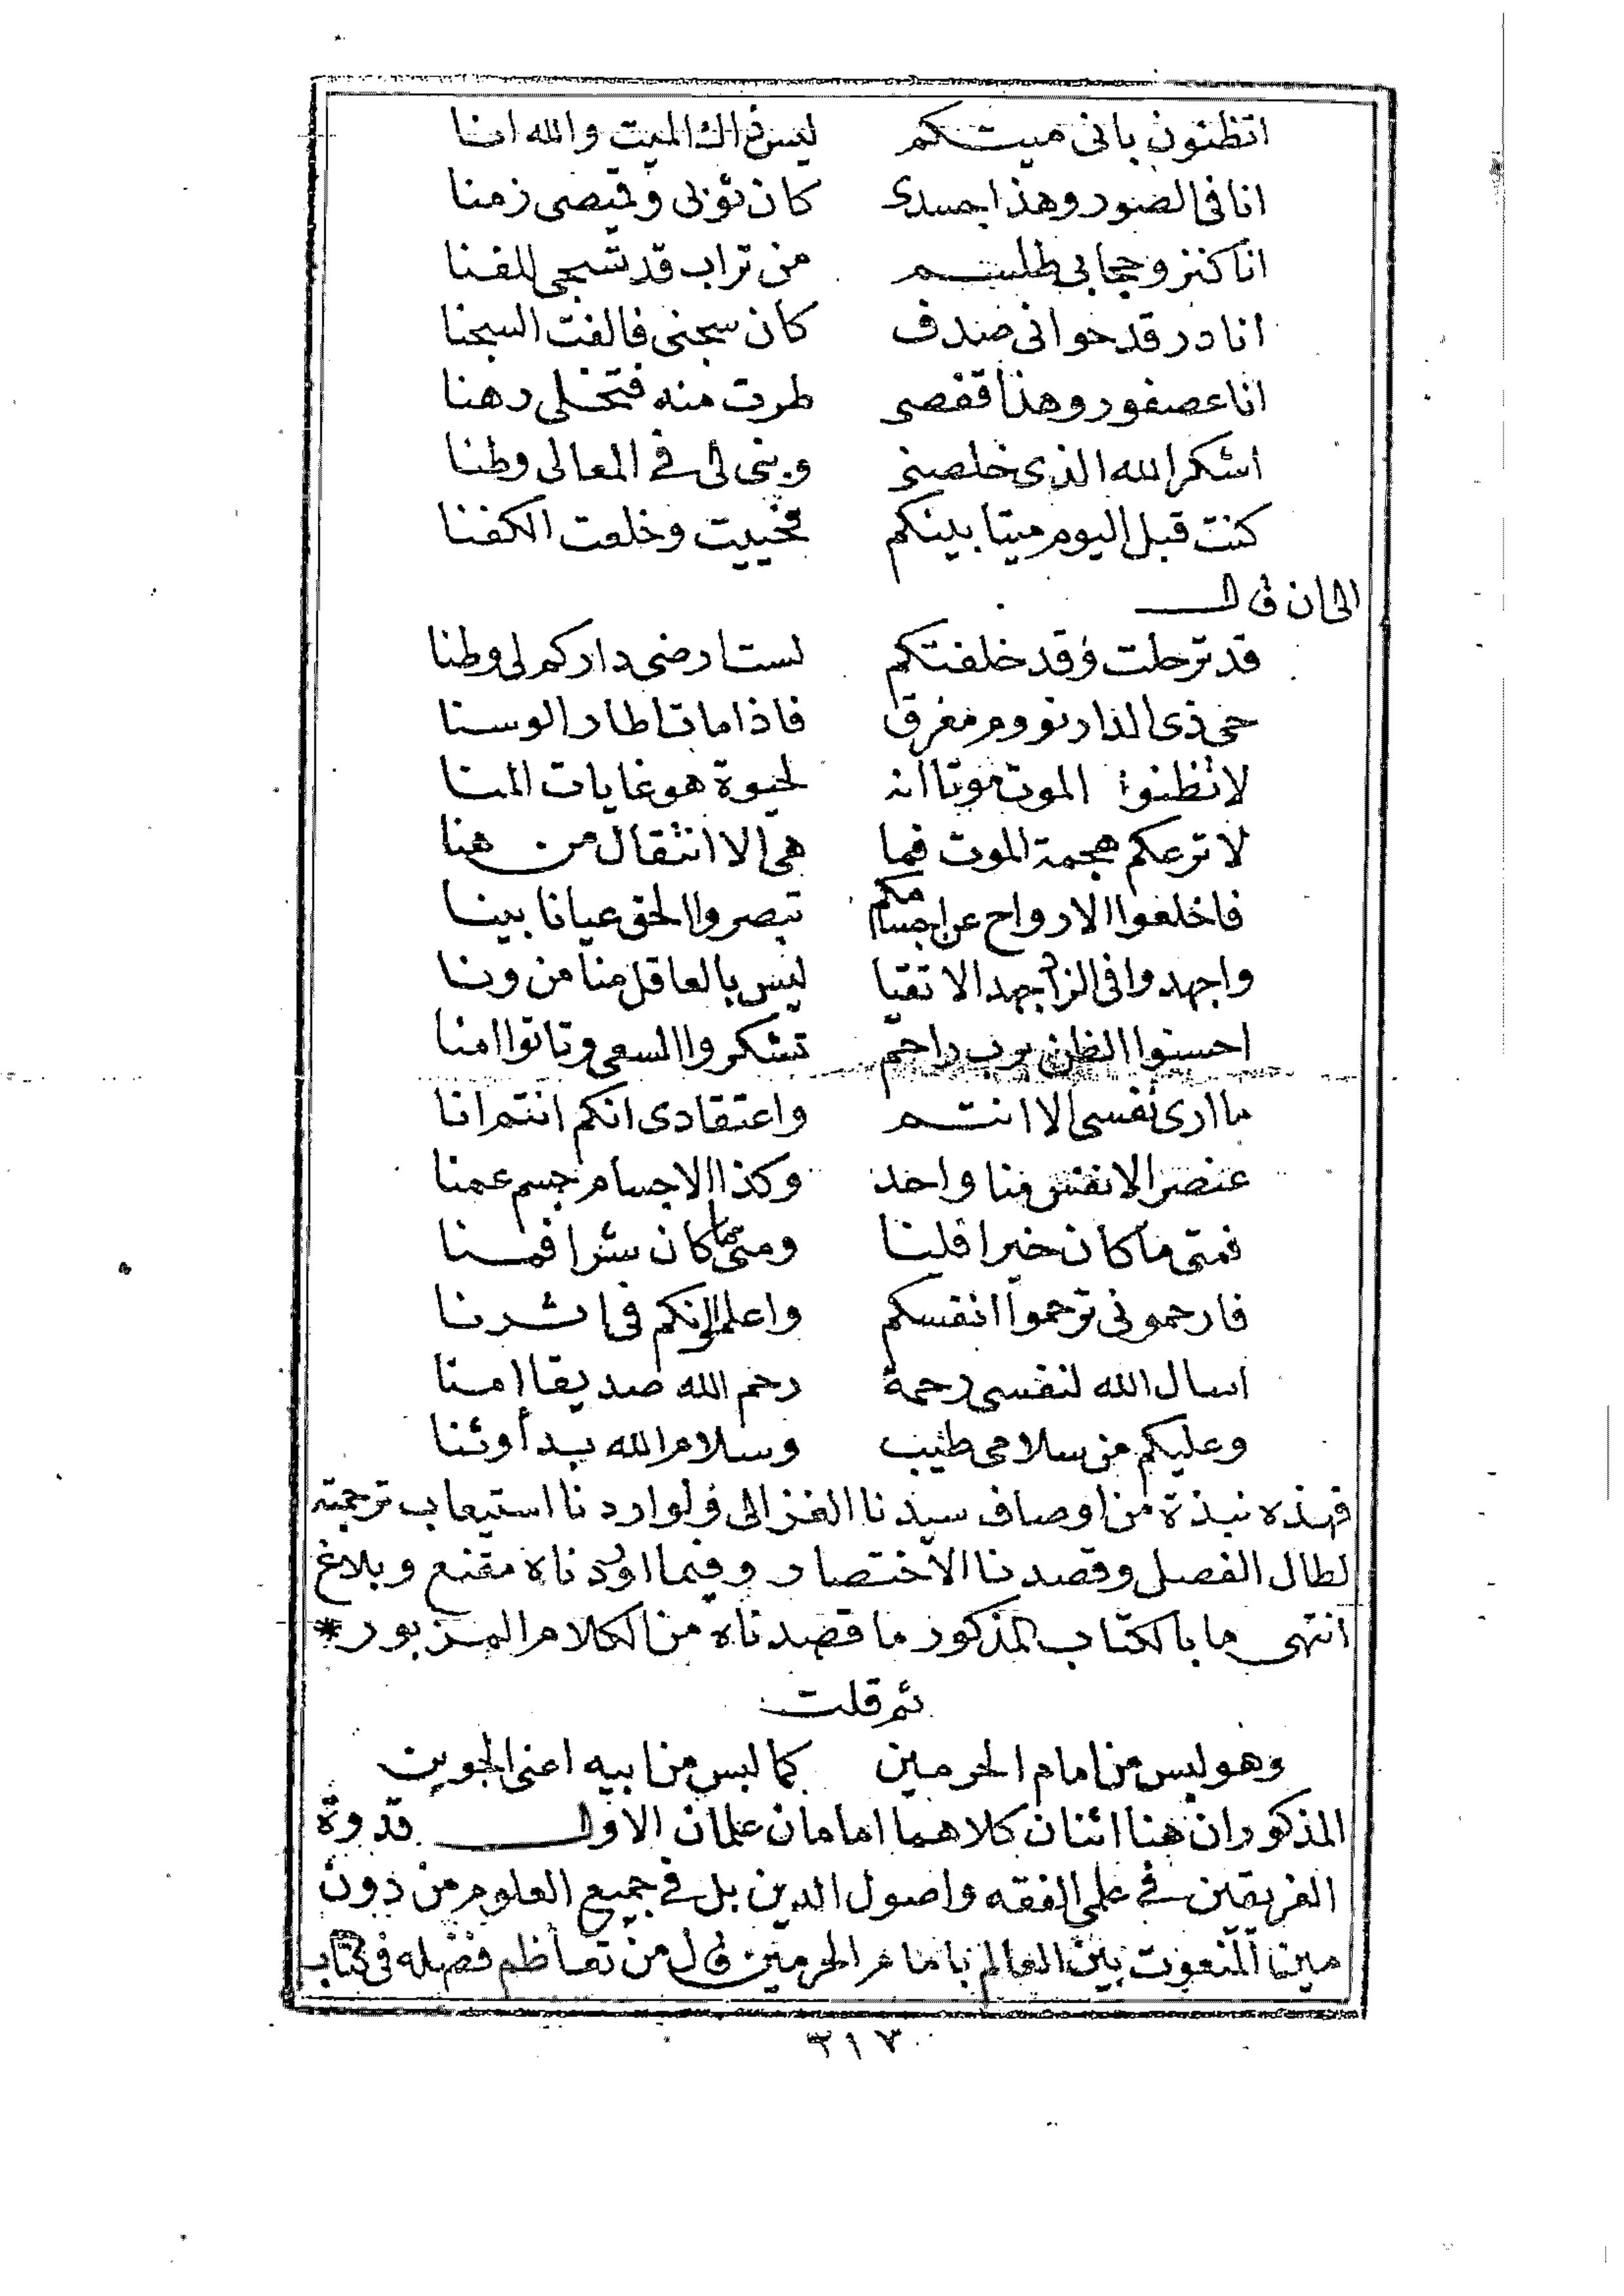 اتظنون بانى ميتكم ليس ذاك الميت والله انا
انا فى الصور وهذا جسدى كان ثوبى وقميصى زمنا
انا كنز وحجابى طلسم من تراب قد تسجى للفنا
انا در قد حوانى صدف كان سجنى فالفت السجنا
انا عصفور وهذا قفصى طرت منه فتخلى رهنا
اشكر الله الذى خلصنى وبنى لى فى المعالى وطنا
كنت قبل اليوم ميتا بينكم فحييت وخلعت الكفنا
الى ان قال
قد ترحلت وقد خلفتكم لست ارضى داركم لى وطنا
حى ذى الدار نووم مغرق فاذا مات اطار الوسنا
لا تظنوا الموت موتا انه لحيوة هو غايات المنا
لا ترعكم هجمة الموت فما هى الا انتقال من هنا
فاخلعوا الارواح عن اجسامكم تبصروا الحق عيانا بينا
واجهدوا فى الزاد جهد الاتقيا ليس بالعاقل منا من ونا
احسنوا الظن برب راحم تشكروا السعى وتاتوا امنا
ما ارى نفسى الا انتم واعتقادى انكم انتم انا
عنصر الانفس منا واحد وكذا الاجسام جسم عمنا
فمتى ما كان خيرا فلنا ومتى ما كان شرا فمنا
فارحمونى ترحموا انفسكم واعلموا انكم فى اثرنا
اسال الله لنفسى رحمة رحم الله صديقا امنا
وعليكم من سلامى طيب وسلام الله بدأ وثنا
فهذه نبذة من اوصاف سيدنا الغزالى ولو اردنا استيعاب ترجمته
لطال الفصل وقصدنا الاختصار وفيما اوردناه مقنع وبلاغ
انتهى ما بالكتاب المذكور ما قصدناه من الكلام المزبور *
ثم قلت
وهو لبس من امام الحرمين كما لبس من ابيه اعنى الجوين
المذكوران هنا اثنان كلاهما امامان علمان الاول قدوة
الفريقين فى علمى الفقه واصول الدين بل فى جميع العلوم من دون
مين المنعوت بين العالم بامام الحرمين قال من تعاظم فضله فى كتاب
٢١٧